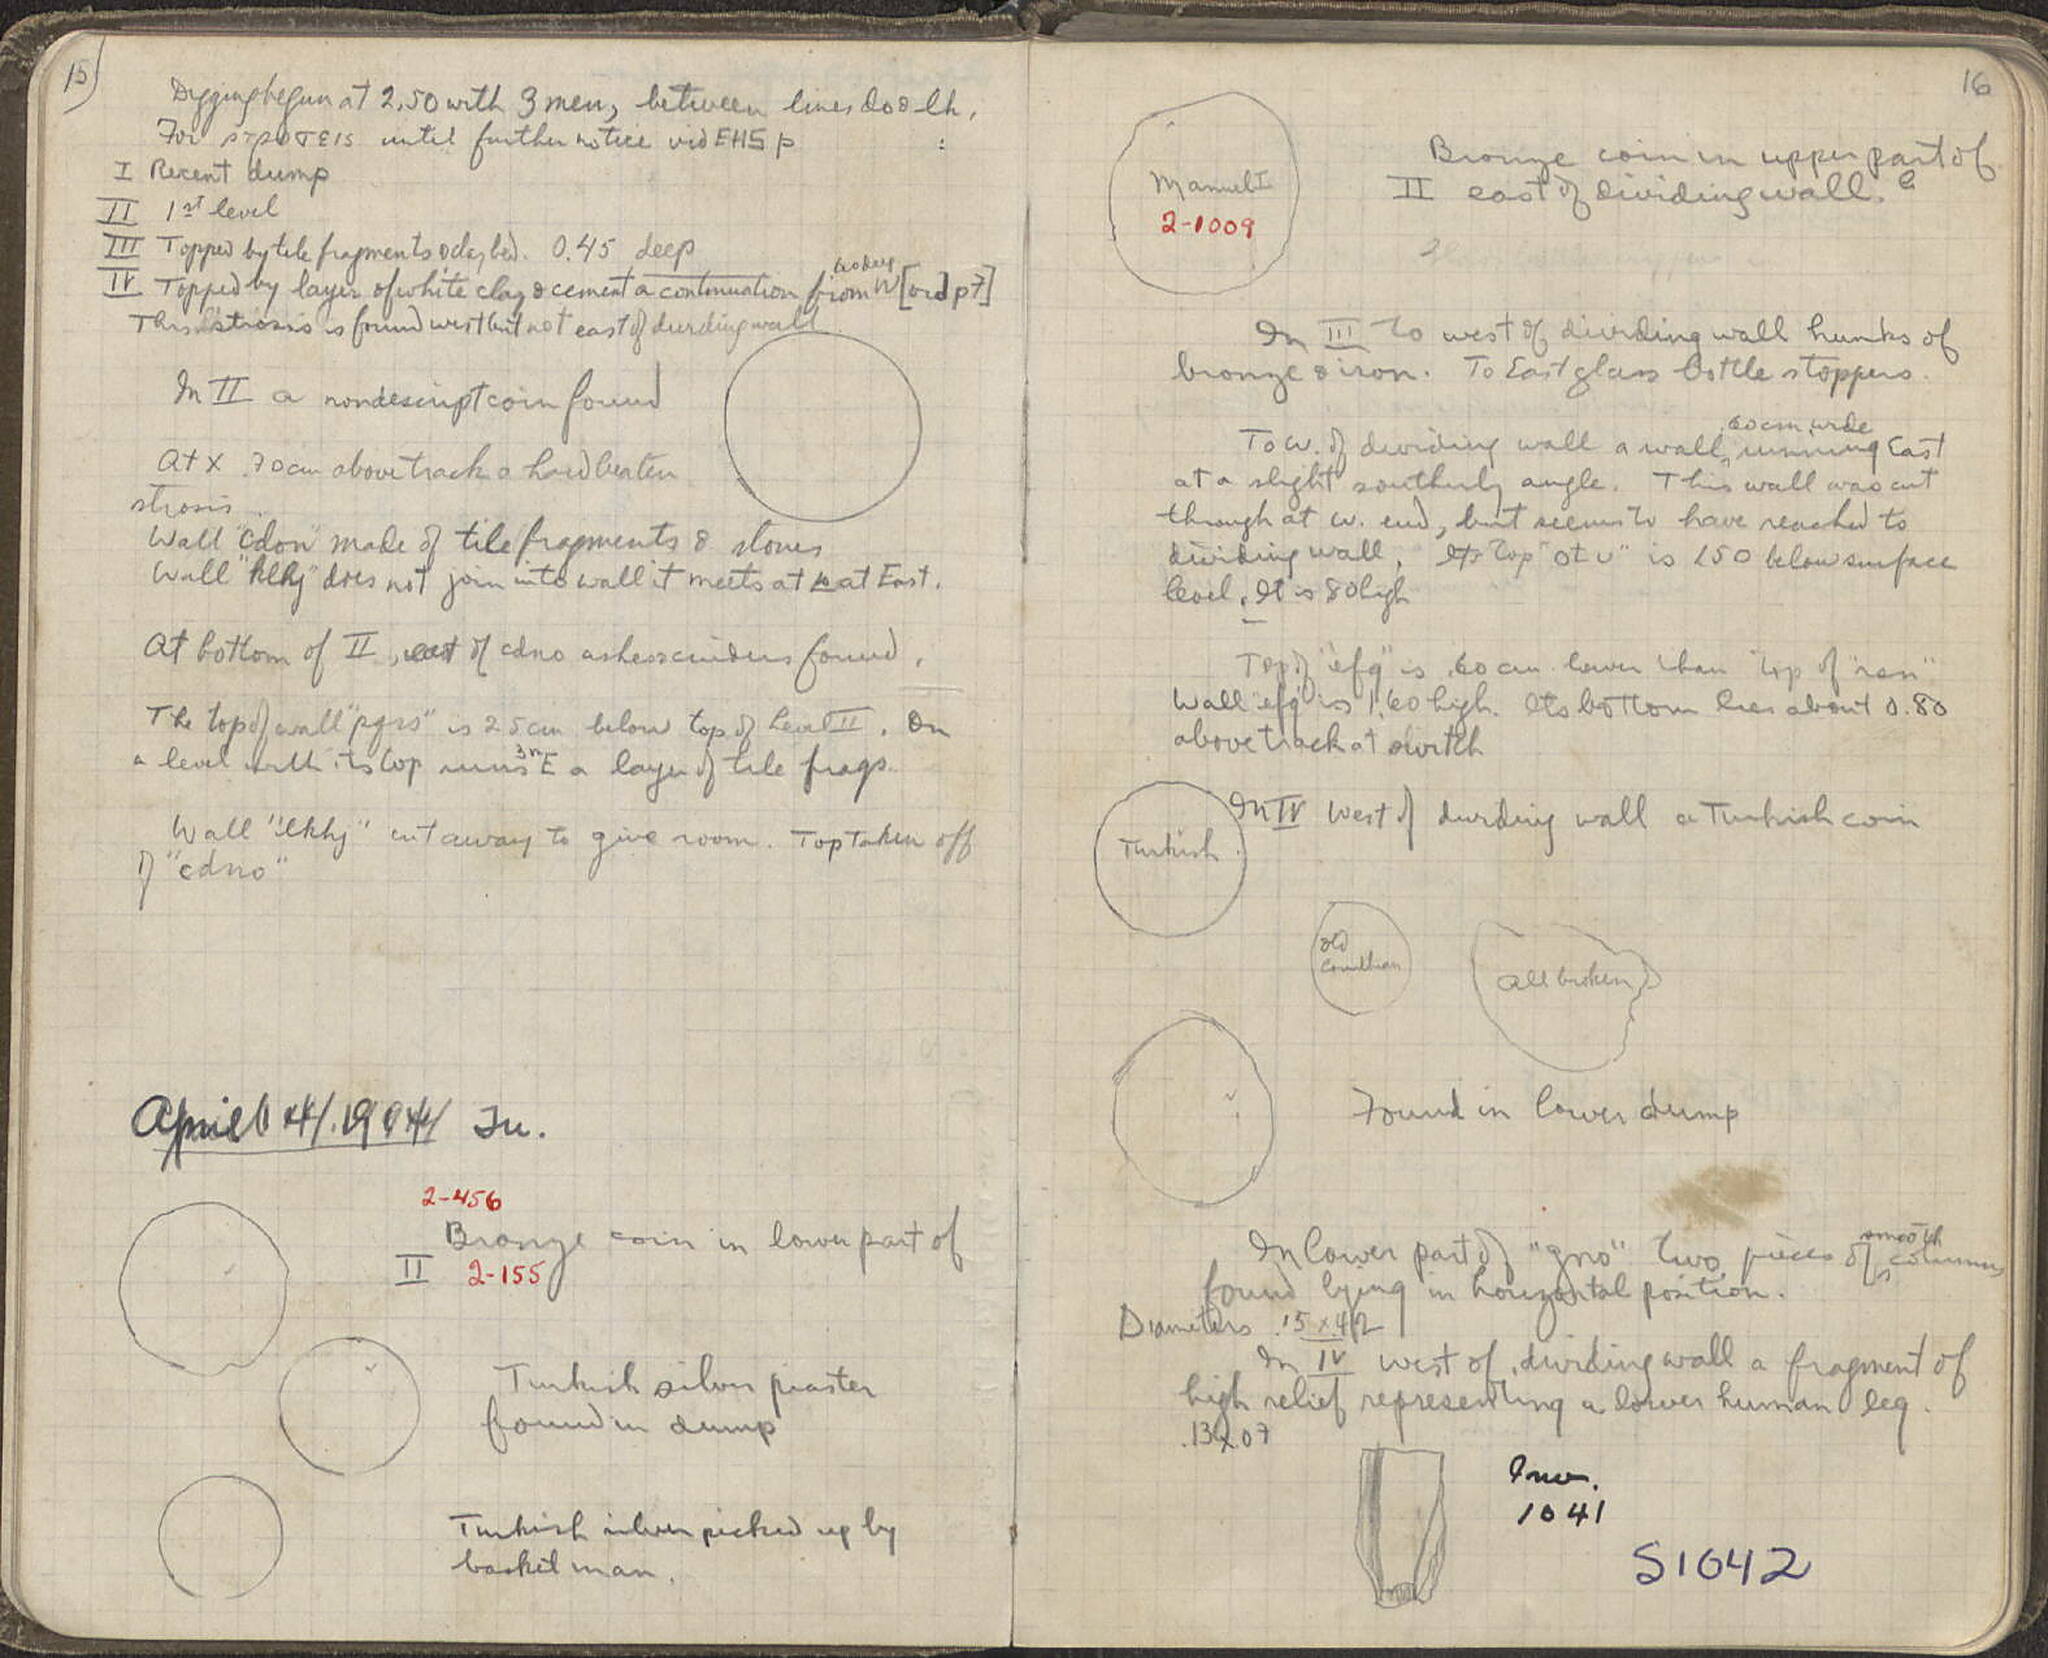 15)
Digging begun at 2.50 with 3 men, between lines do & lh.
For στρωσεις until further notice vid EHS p :
I Recent dump
II 1st level
III Topped by tile fragments & clay bed. 0.45 deep
IV Topped by layer of white clay & cement a continuation from W [vid p 7]
This strosis is found west but not east of dividing wall
In II a nondescript coin found
At X .70 cm above track a hard beaten
strosis.
Wall "cdon" made of tile fragments & stones
Wall "klhj" does not join into wall it meets at k at East.
At bottom of II, east of cdno ashes & cinders found.
The top of wall "pqrs" is 25 cm below top of level II. On
a level with its top runs 3m E a layer of tile frags.
Wall "lkhj" cut away to give room. Top taken off
of "cdno"
April 4, 1904 Tu.
2-456
Bronze coin in lower part of
II 2-155
Turkish silver piaster
found in dump
Turkish silver picked up by
basket man.
16
Manuel I
2-1009
Bronze coin in upper part of
II east of dividing wall.
In III to west of dividing wall hunks of
bronze & iron. To East glass bottle stoppers.
60 cm wide
To W. of dividing wall a wall, running East
at a slight southerly angle. This wall was cut
through at w. end, but seems to have reached to
dividing wall. Its top "at v" is 150 below surface
level. It is 80 high
Top of "efg" is .60 cm lower than top of "rsn"
Wall "efg" is 1.60 high. Its bottom lies about 0.80
above track at switch
In IV West of dividing wall a Turkish coin
Turkish.
old
Corinthian
All broken
Found in lower dump
In lower part of "gno" two pieces of smooth columns
found lying in horizontal position.
Diameters .15 x .42
In IV west of dividing wall a fragment of
high relief representing a lower human leg.
.13 x .07
Inv.
1041
S1042